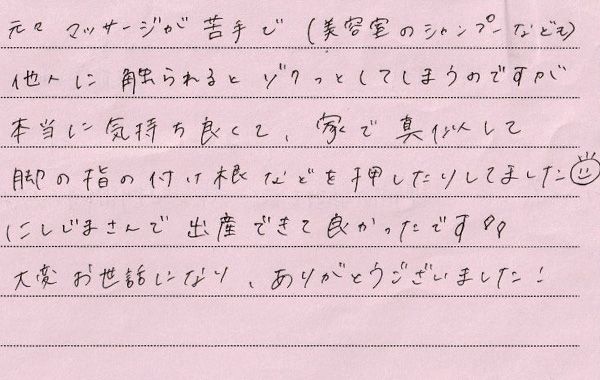 元々 マッサージが 苦手で (美容室のシャンプーなども)
他人に 触られると ゾクっとしてしまうのですが
本当に 気持ち良くて、家で 真似して
脚の指の付け根などを押したりしてました
にしじまさんで 出産できて良かったです!!
大変お世話になり、ありがとうございました!